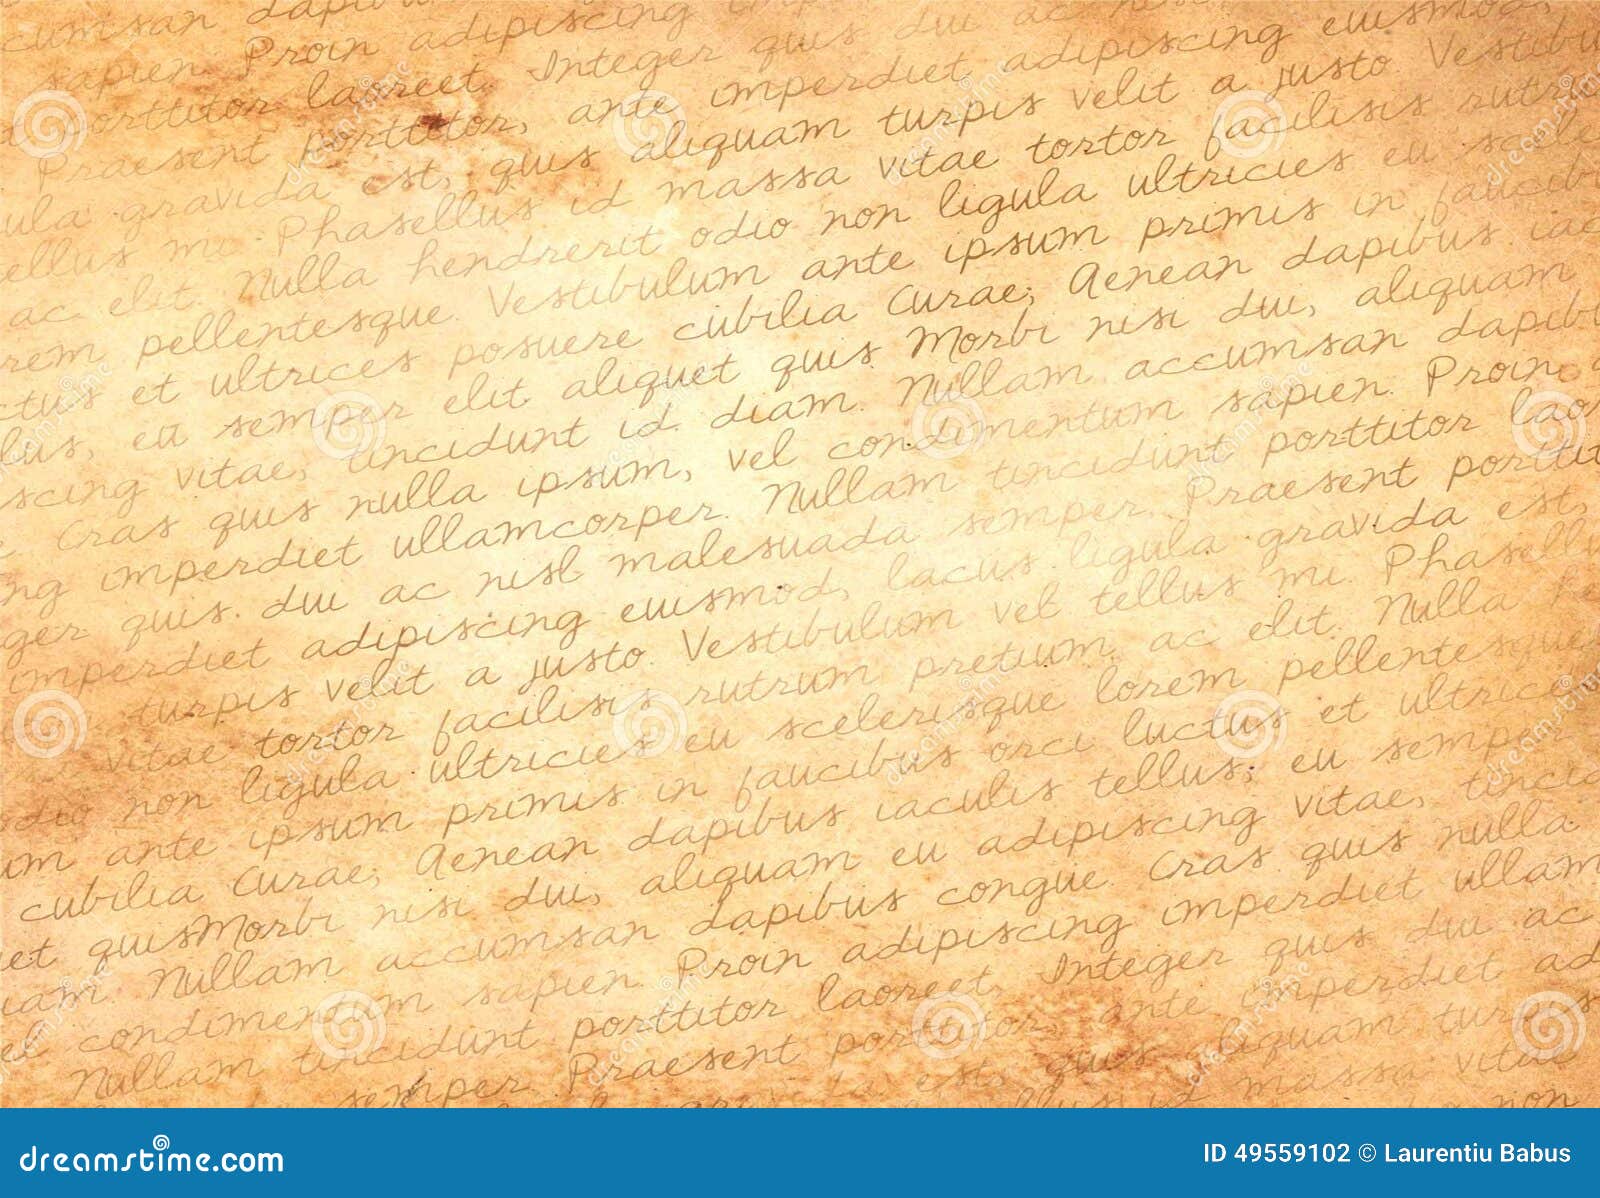 cumsan dapibus
sapien. Proin adipiscing
porttitor laoreet. Integer quis dui ac
Praesent porttitor, ante imperdiet adipiscing euismod,
ula gravida est, quis aliquam turpis velit a justo. Vestibu
ellus mi. Phasellus id massa vitae tortor facilisis rutru
ac elit. Nulla hendrerit odio non ligula ultricies eu scele
rem pellentesque. Vestibulum ante ipsum primis in faucib
ctus et ultrices posuere cubilia Curae; Aenean dapibus iac
lus, eu semper elit aliquet quis Morbi nisi dui, aliquam
scing vitae, tincidunt id diam. Nullam accumsan dapib
Cras quis nulla ipsum, vel condimentum sapien. Proin a
ng imperdiet ullamcorper. Nullam tincidunt porttitor laor
ger quis dui ac nisl malesuada semper. Praesent porttit
imperdiet adipiscing euismod, lacus ligula gravida est,
turpis velit a justo. Vestibulum vel tellus mi. Phasellu
vitae tortor facilisis rutrum pretium ac elit. Nulla he
odio non ligula ultricies eu scelerisque lorem pellentesque
um ante ipsum primis in faucibus orci luctus et ultrices
cubilia Curae; Aenean dapibus iaculis tellus, eu semper
et quisMorbi nisi dui, aliquam eu adipiscing vitae, tincid
iam. Nullam accumsan dapibus congue. Cras quis nulla
el condimentum sapien. Proin adipiscing imperdiet ullam
Nullam tincidunt porttitor laoreet. Integer quis dui ac
semper. Praesent porttitor, ante imperdiet ad
est, quis aliquam turpis
id massa vitae
non
dreamstime.com
ID 49559102 © Laurentiu Babus